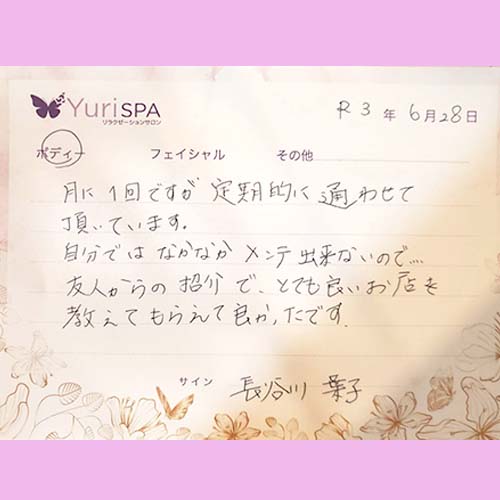 YuriSPA
リラクゼーションサロン
R3年6月28日
ボディー フェイシャル その他
月に1回ですが定期的に通わせて
頂いています。
自分ではなかなかメンテ出来ないので…
友人からの招介で、とても良いお店を
教えてもらえて良かったです。
サイン 長谷川 葉子